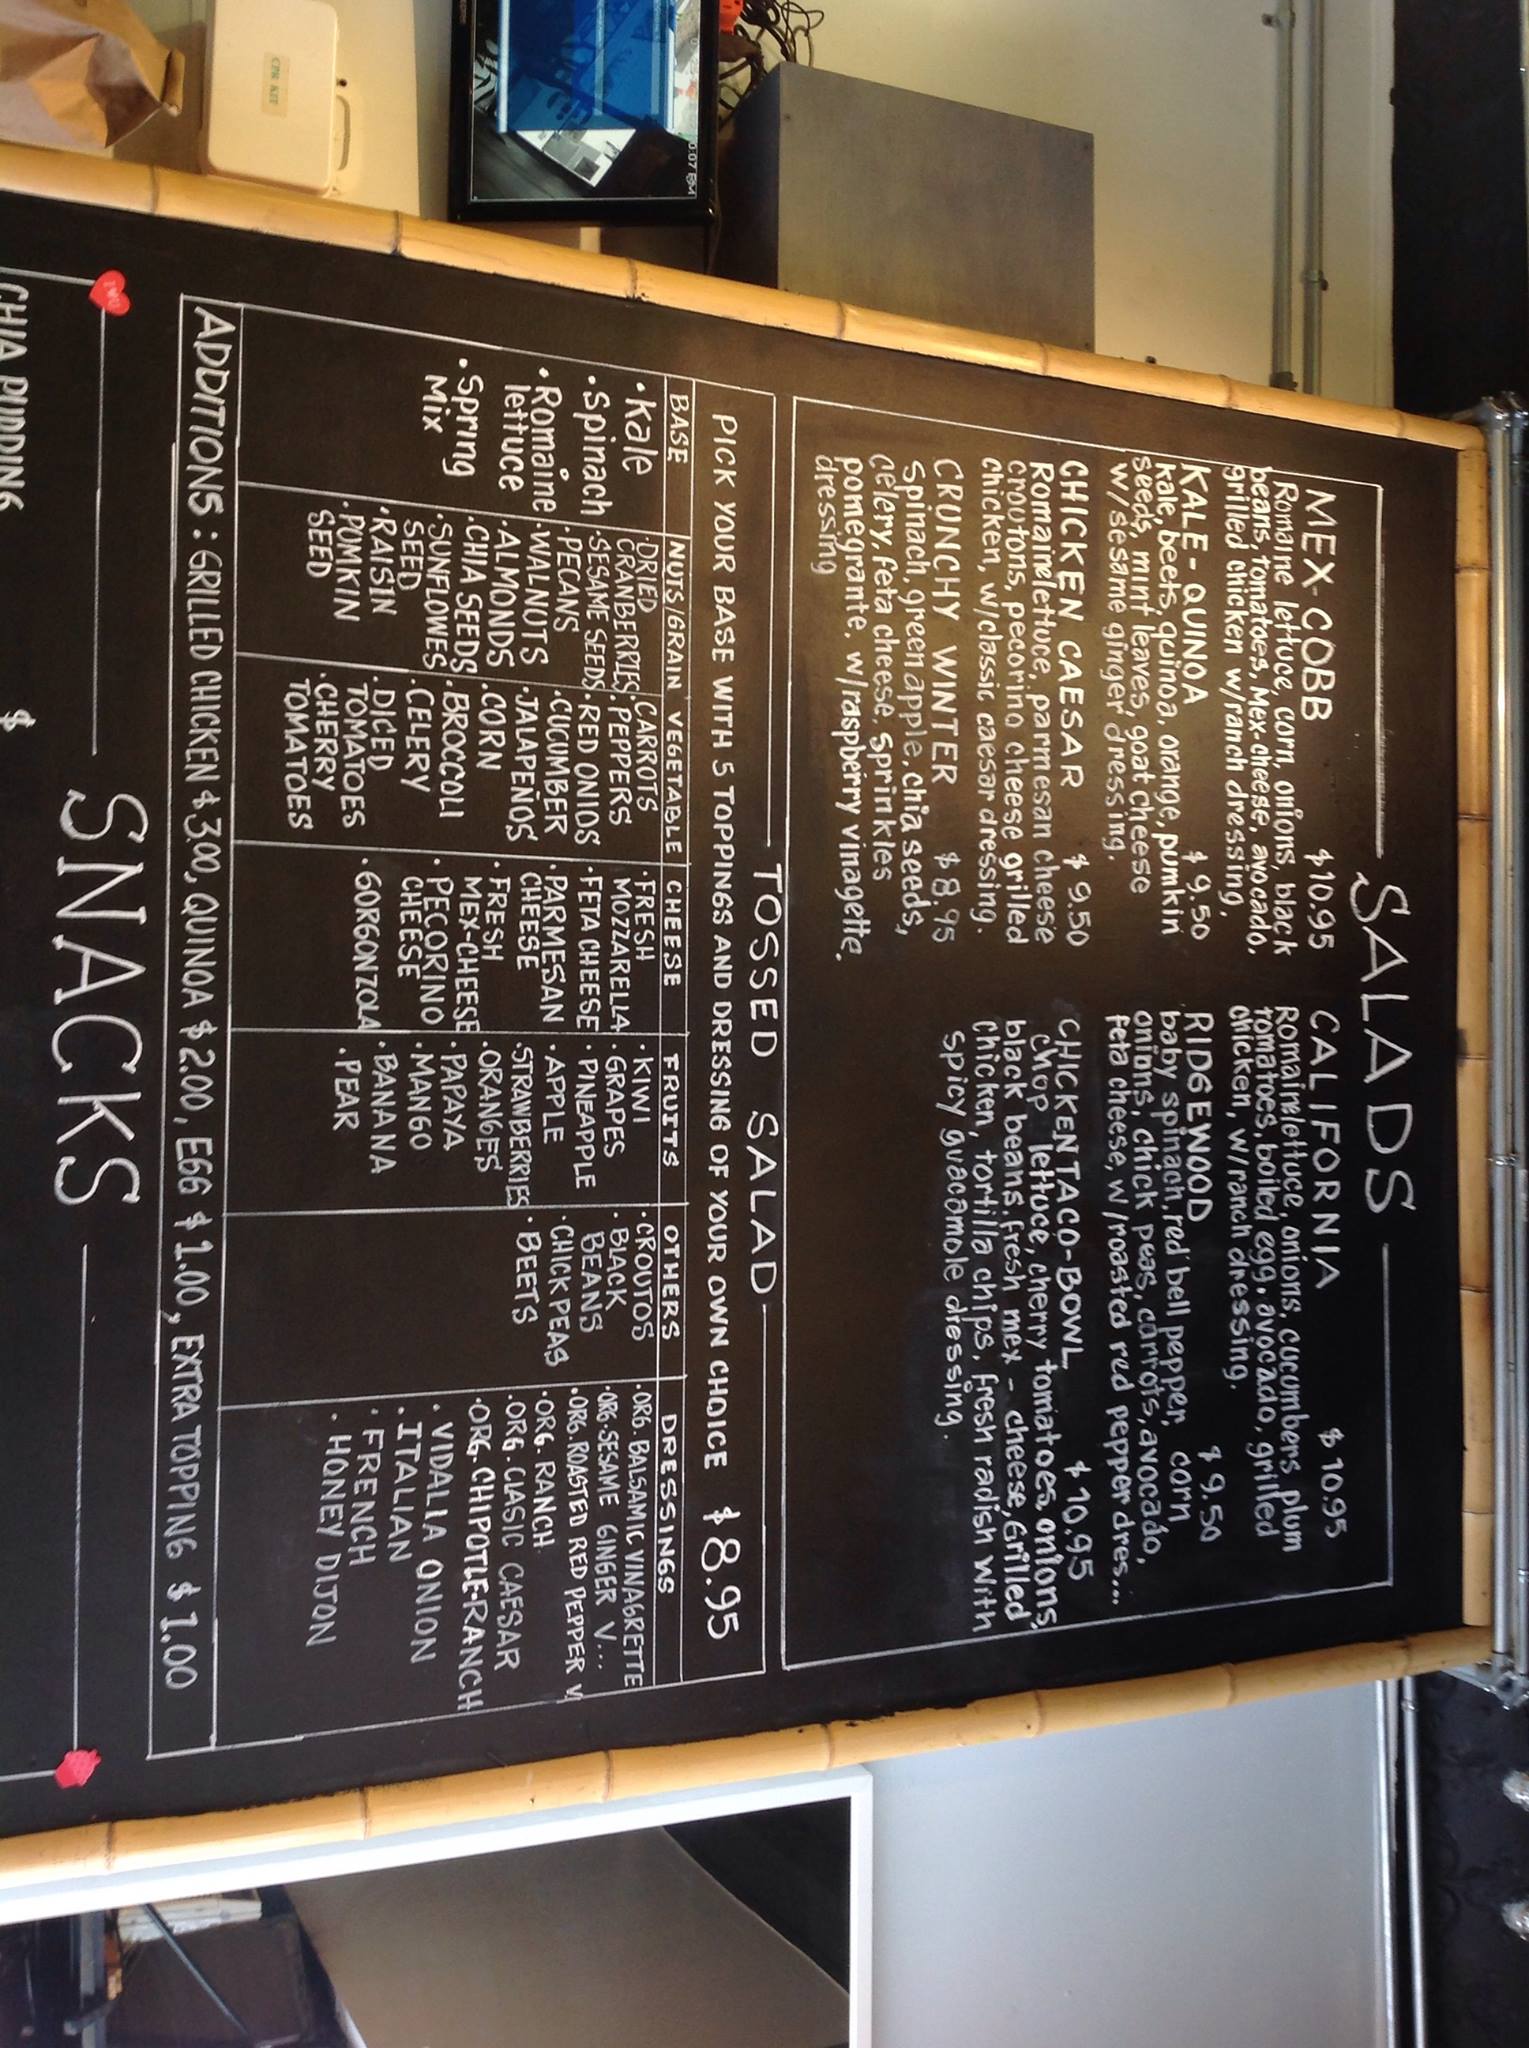 SALADS
MEX-COBB $10.95
Romaine lettuce, corn, onions, black
beans, tomatoes, Mex-cheese, avocado,
grilled chicken w/ranch dressing.
KALE-QUINOA $9.50
kale, beets, quinoa, orange, pumkin
seeds, mint leaves, goat cheese
w/sesame ginger dressing.
CHICKEN CAESAR $9.50
Romaine lettuce, parmesan cheese
croutons, pecorino cheese grilled
chicken, w/classic caesar dressing.
CRUNCHY WINTER $8.95
Spinach, green apple, chia seeds,
celery, feta cheese, sprinkles
pomegrante. w/raspberry vinagette.
dressing
CALIFORNIA $10.95
Romaine lettuce, onions, cucumbers plum
tomatoes, boiled egg, avocado, grilled
chicken, w/ranch dressing.
RIDGEWOOD $9.50
baby spinach, red bell pepper, corn
onions, chick peas, carrots, avocado,
feta cheese, w/roasted red pepper dres...
CHICKEN TACO-BOWL $10.95
Chop lettuce, cherry tomatoes, onions,
black beans, fresh mex-cheese, Grilled
chicken, tortilla chips, fresh radish with
spicy guacamole dressing.
TOSSED SALAD
PICK YOUR BASE WITH 5 TOPPINGS AND DRESSING OF YOUR OWN CHOICE $8.95
BASE
·Kale
·Spinach
·Romaine
lettuce
·Spring
Mix
NUTS/GRAIN
·DRIED
CRANBERRIES
·SESAME SEEDS
·PECANS
·WALNUTS
·ALMONDS
·CHIA SEEDS
·SUNFLOWES
SEED
·RAISIN
·PUMKIN
SEED
VEGETABLE
·CARROTS
·PEPPERS
·RED ONIOS
·CUCUMBER
·JALAPEÑOS
·CORN
·BROCCOLI
·CELERY
·DICED
TOMATOES
·CHERRY
TOMATOES
CHEESE
·FRESH
MOZZARELLA
·FETA CHEESE
·PARMESAN
CHEESE
·FRESH
MEX-CHEESE
·PECORINO
CHEESE
·GORGONZOLA
FRUITS
·KIWI
·GRAPES
·PINEAPPLE
·APPLE
·STRAWBERRIES
·ORANGES
·PAPAYA
·MANGO
·BANANA
·PEAR
OTHERS
·CROUTOS
·BLACK
BEANS
·CHICK PEAS
·BEETS
DRESSINGS
·ORG. BALSAMIC VINAGRETTE
·ORG. SESAME GINGER V...
·ORG. ROASTED RED PEPPER V
·ORG. RANCH
·ORG. CLASIC CAESAR
·ORG. CHIPOTLE-RANCH
·VIDALIA ONION
·ITALIAN
·FRENCH
·HONEY DIJON
ADDITIONS: GRILLED CHICKEN $3.00, QUINOA $2.00, EGG $1.00, EXTRA TOPPING $1.00
SNACKS
CHIA PUDDING $
CPR KIT